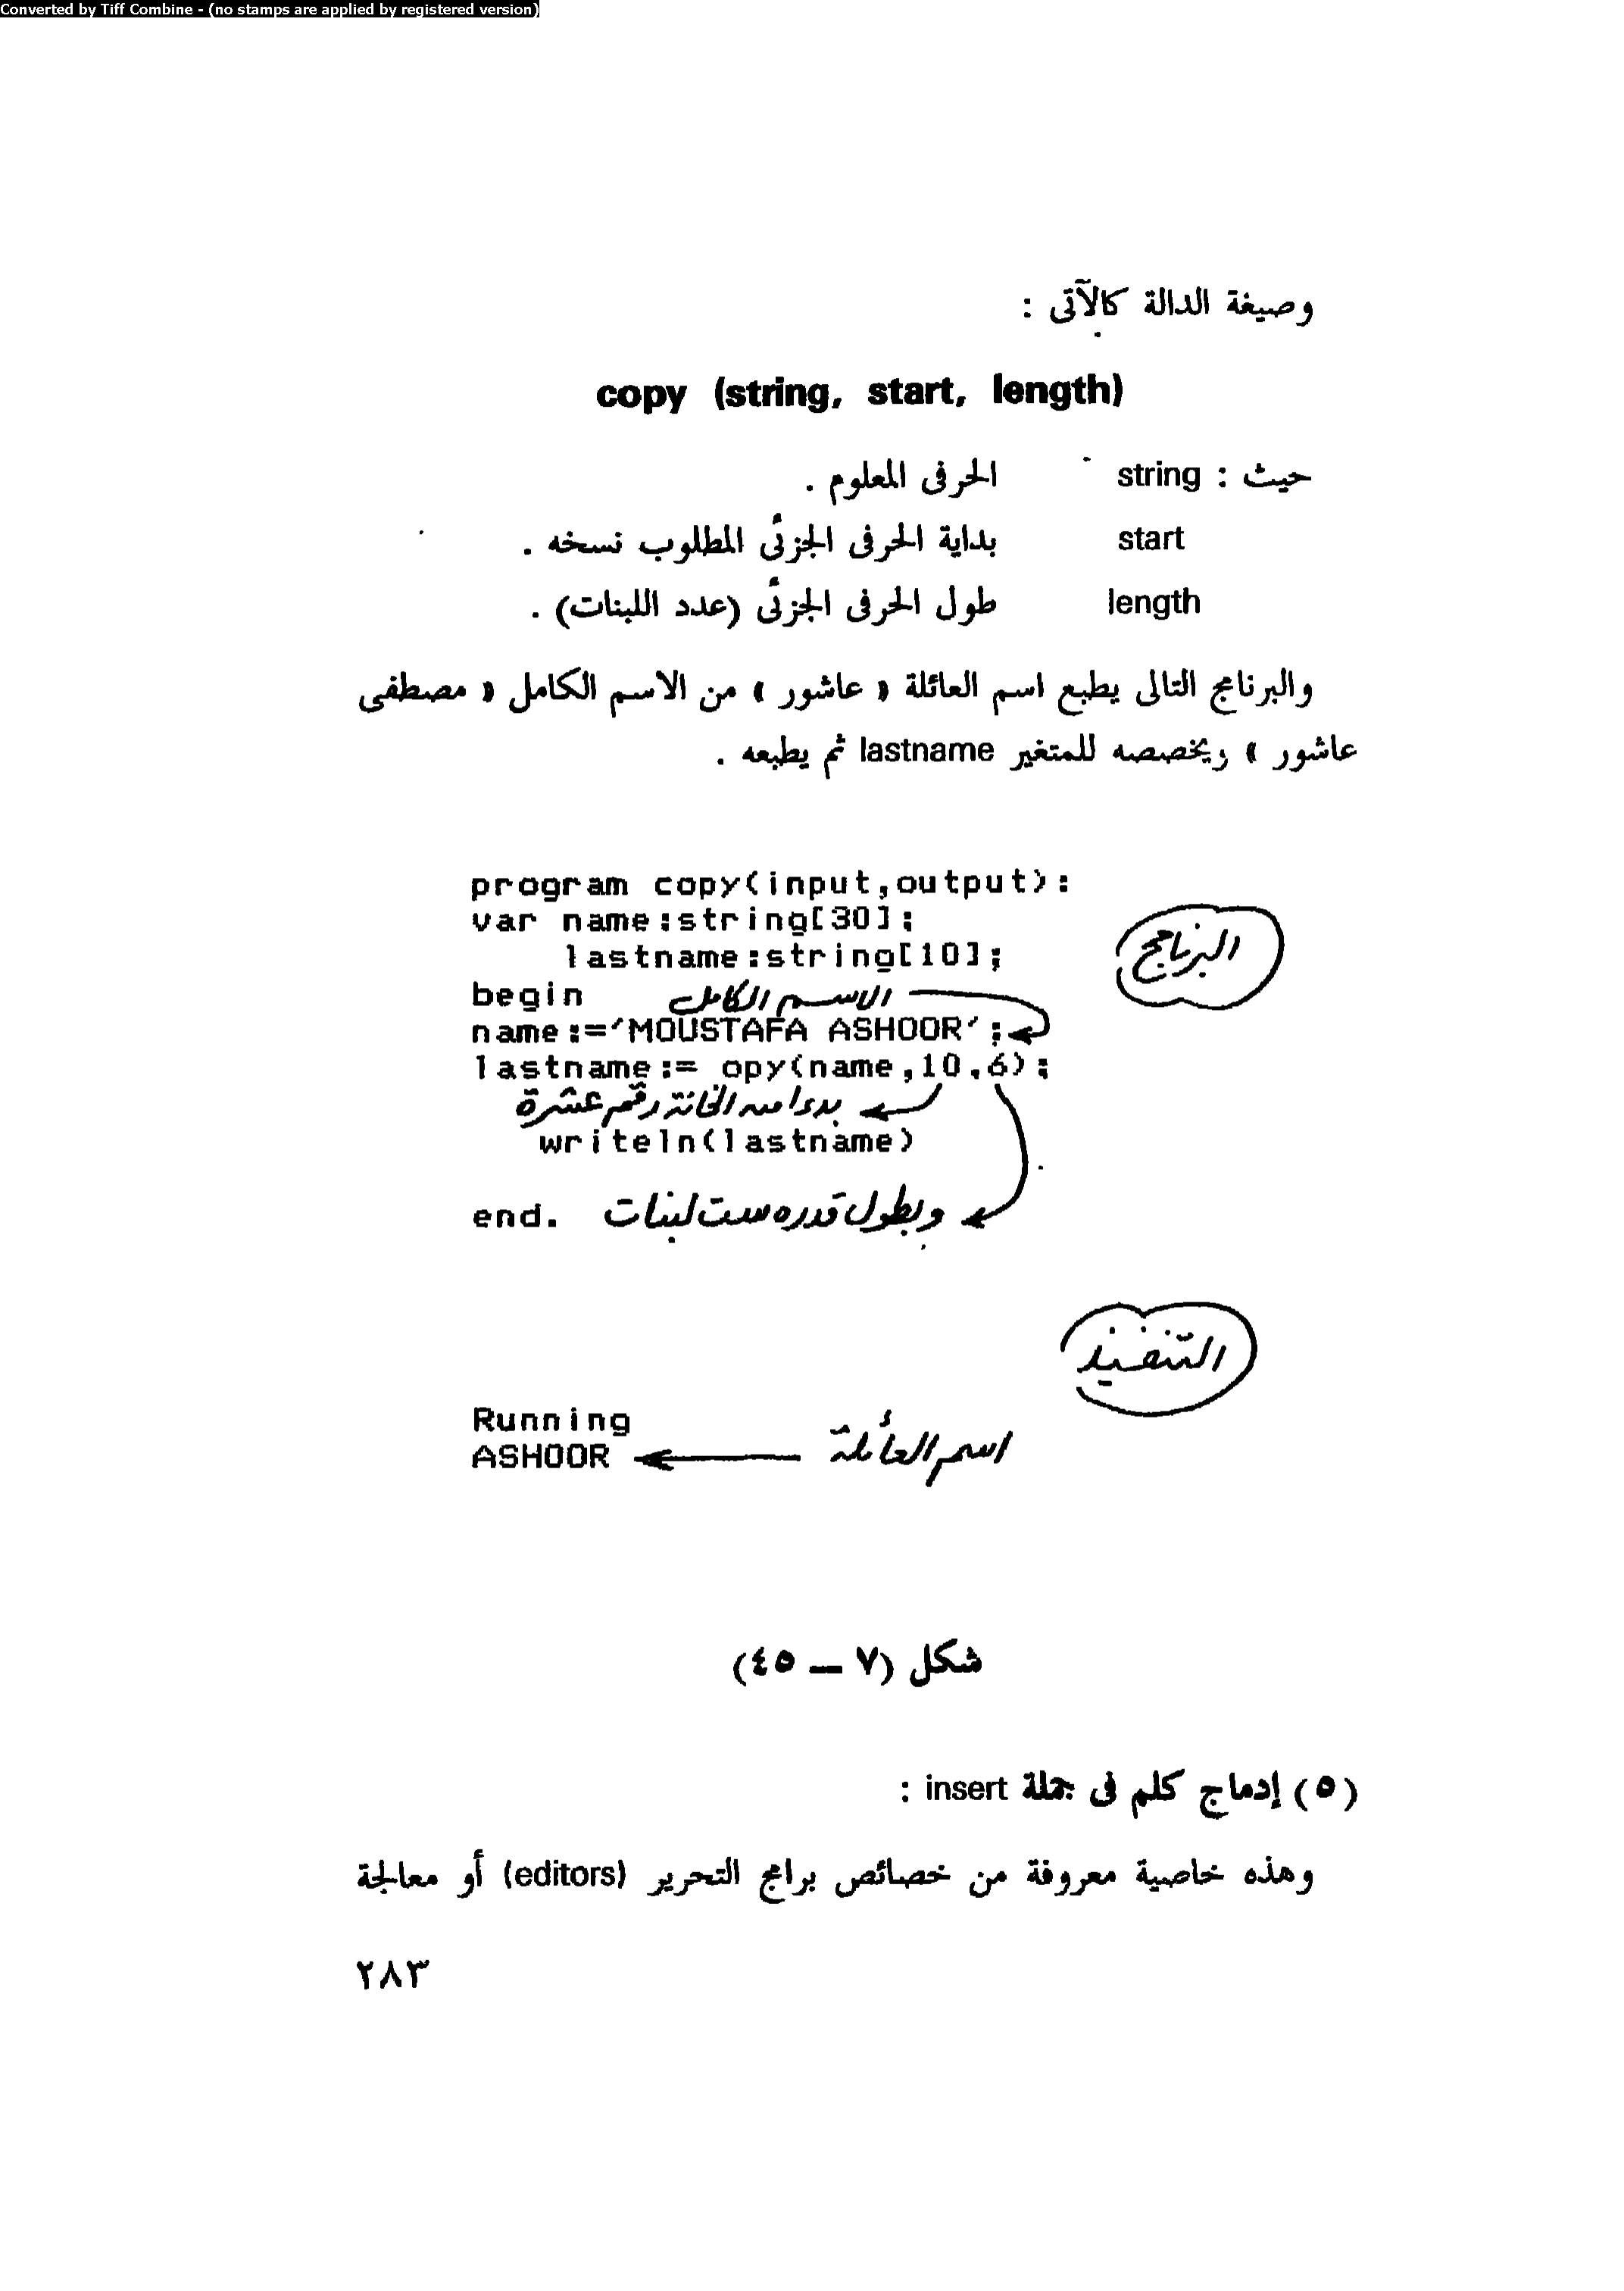 Converted by Tiff Combine - (no stamps are applied by registered version)
وصيغة الدالة كالآتى :
copy (string, start, length)
حيث : string الحرفى المعلوم .
start بداية الحرفى الجزئى المطلوب نسخه .
length طول الحرفى الجزئى (عدد اللبنات) .
والبرنامج التالى يطبع اسم العائلة « عاشور » من الاسم الكامل « مصطفى
عاشور » ويخصصه للمتغير lastname ثم يطبعه .
program copy(input,output):
var name:string[30];
lastname:string[10];
البرنامج
begin الاسم الكامل
name:='MOUSTAFA ASHOOR';
lastname:= opy(name,10,6);
بدءا من الخانة رقم عشرة
writeln(lastname)
end. وبطول قدره ست لبنات
التنفيذ
Running
ASHOOR اسم العائلة
شكل (٧ – ٤٥)
(٥) إدماج كلم فى جملة insert :
وهذه خاصية معروفة من خصائص برامج التحرير (editors) أو معالجة
٢٨٣